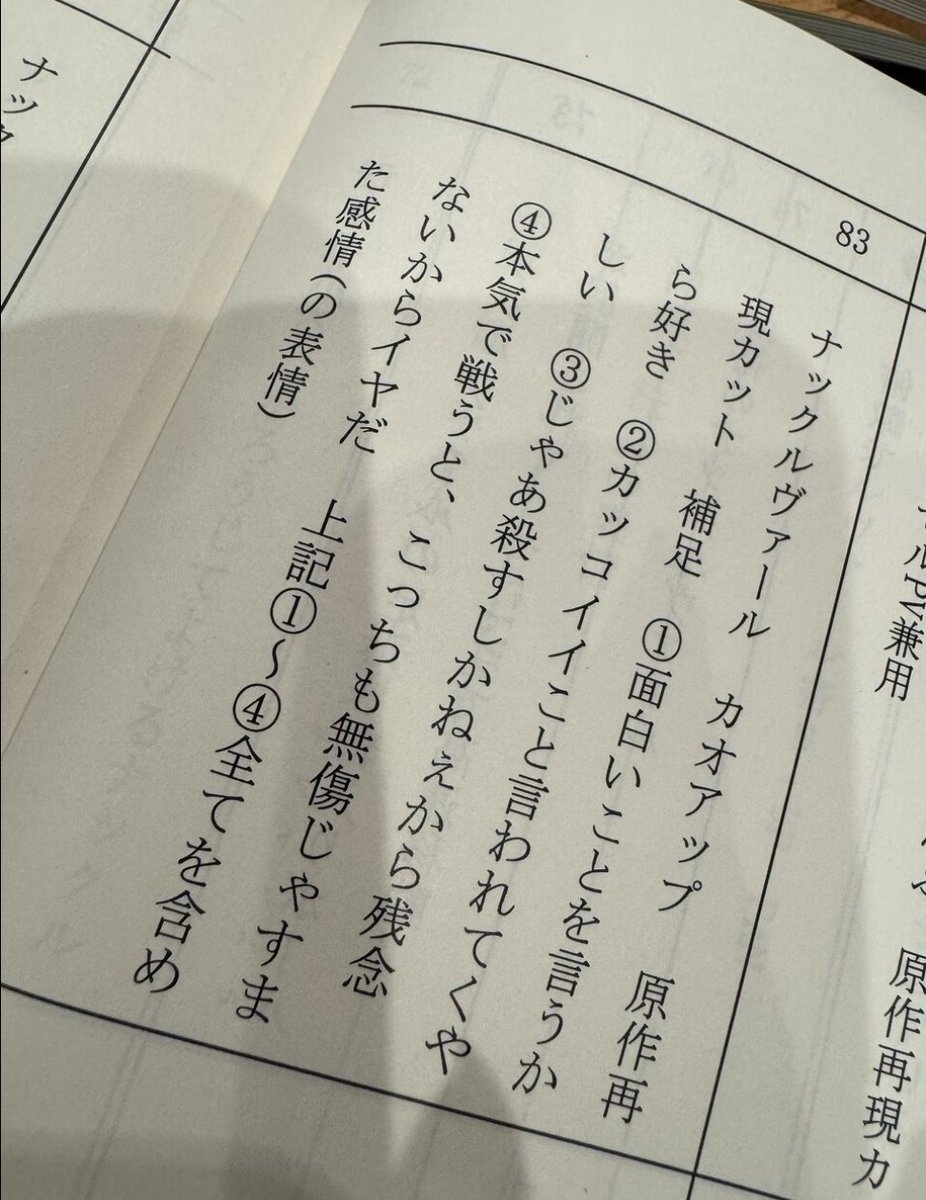 ルPV兼用
原作再現カ
83
ナックルヴァール　カオアップ　原作再
現カット　補足　①面白いことを言うか
ら好き　②カッコイイこと言われてくや
しい　③じゃあ殺すしかねぇから残念
④本気で戦うと、こっちも無傷じゃすま
ないからイヤだ　上記①～④全てを含め
た感情(の表情)
ナック